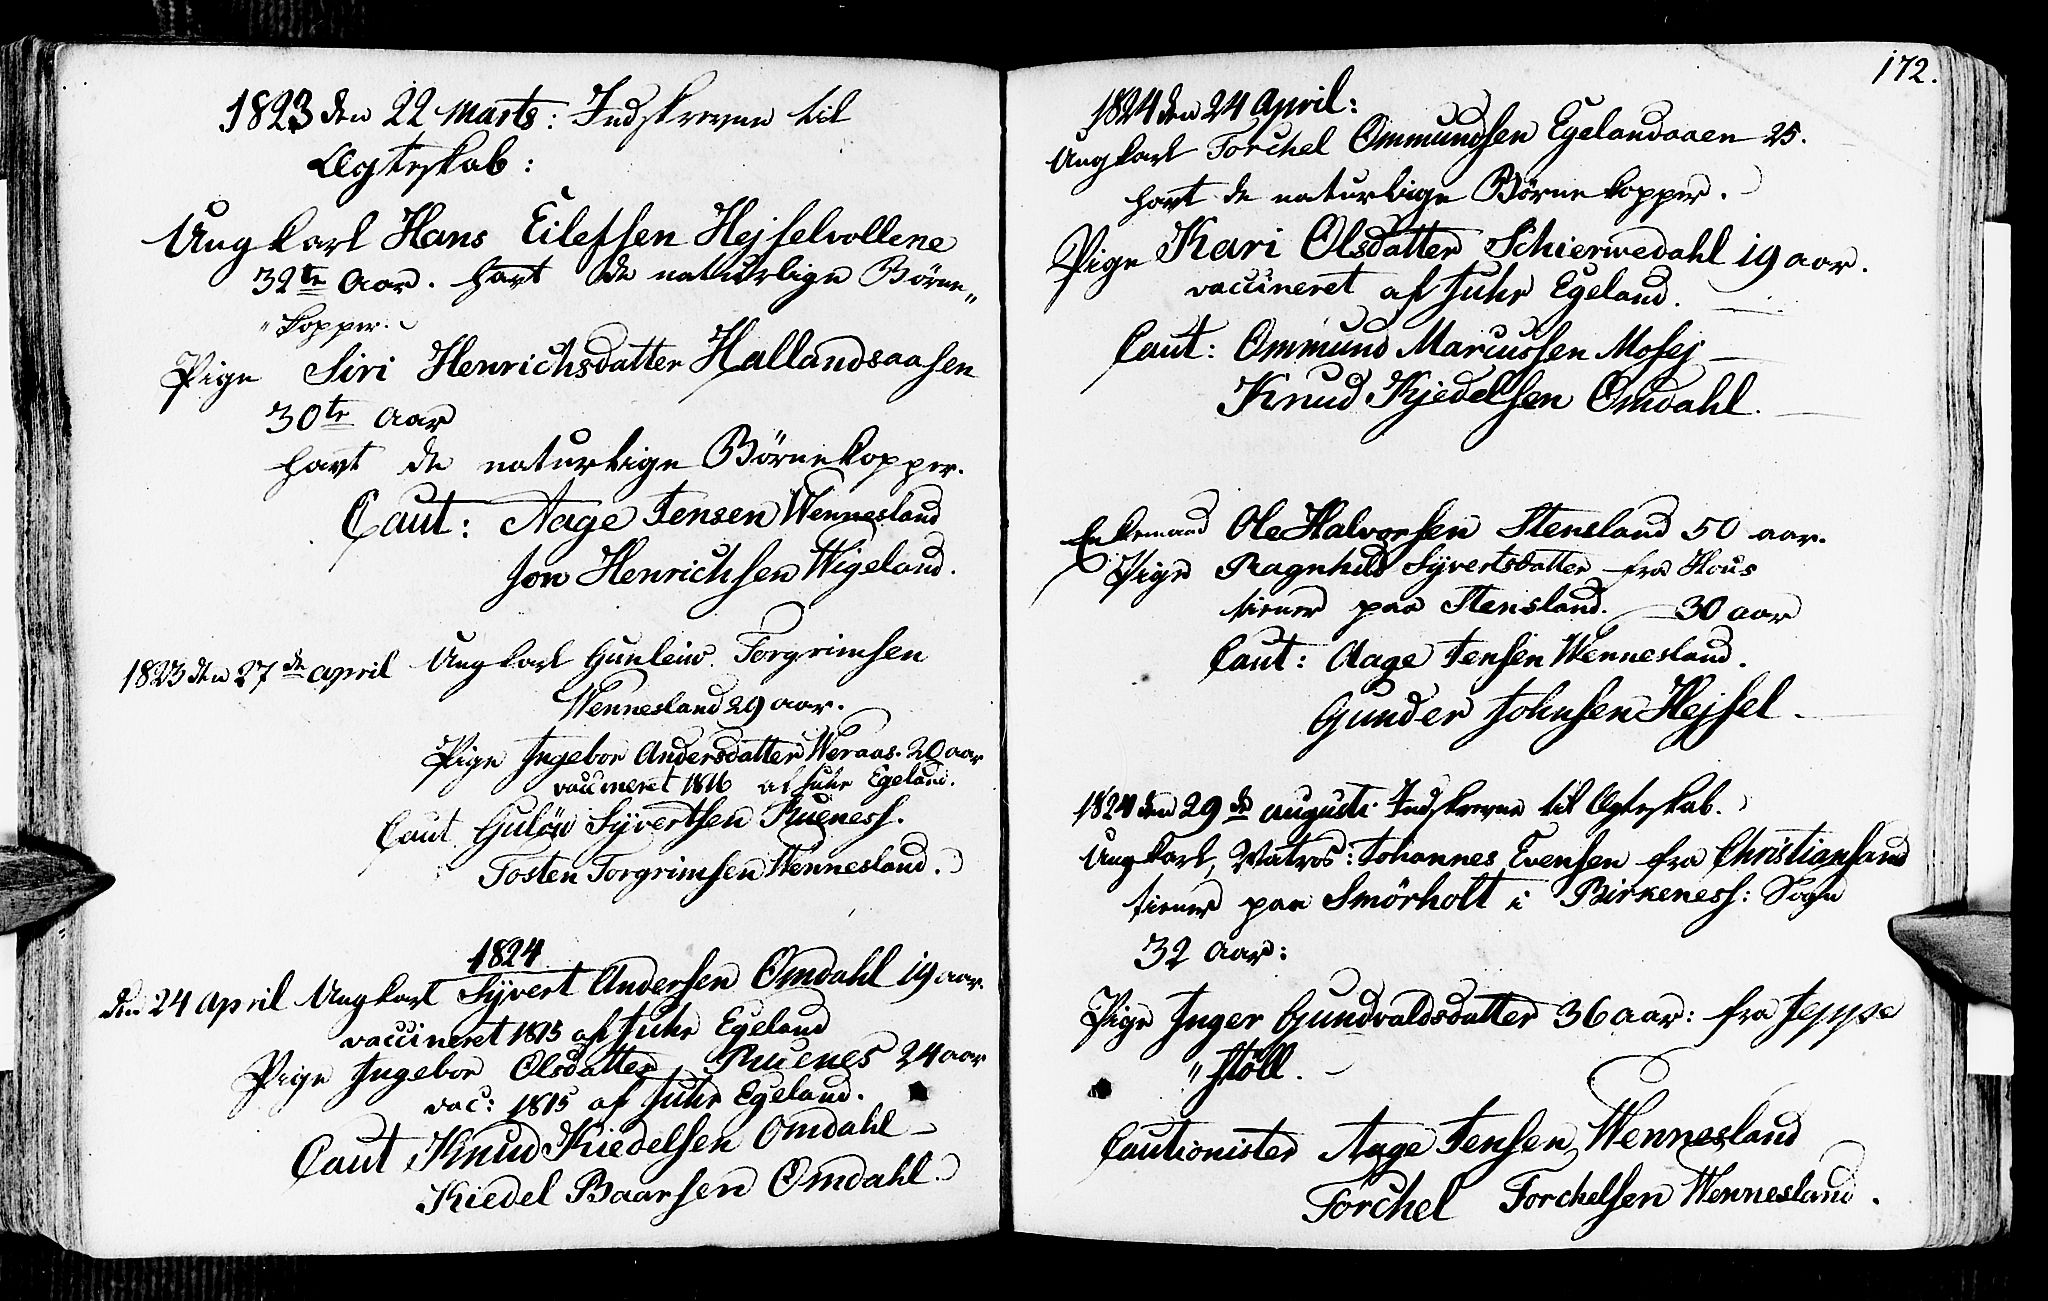 1823 den 22 Marts: Indskrevne til
Ægteskab:
Ungkarl Hans Eilefsen Hejselvollene
32te Aar. havt de naturlige Börne„
„kopper.
Pige Siri Henrichsdatter Hallandsaasen
30te Aar
havt de naturlige Börnekopper.
Caut: Aage Jensen Wennesland
Jon Henrichsen Wigeland.
1823 den 27de april Ungkarl Gunleiw Torgrimsen
Wennesland 29 aar.
Pige Ingebor Andersdatter Weraas. 20 aar
vaccineret 1816 af Juhr Egeland.
Caut Gulöw Syvertsen Rueness.
Tosten Torgrimsen Wennesland.
1824
den 24 April Ungkarl Syvert Andersen Omdahl 19 aar.
vaccineret 1815 af Juhr Egeland
Pige Ingebor Olsdatter Ruenes 24 aar
vac: 1815 af Juhr Egeland.
Caut Knud Kiedelsen Omdahl
Kiedel Baarsen Omdahl.
172.
1824 den 24 April:
Ungkarl Torchel Ommundsen Egelandaaen 25.
havt de naturlige Börnekopper.
Pige Kari Olsdatter Schierwedahl 19 aar.
vaccineret af Juhr Egeland.
Caut: Ommund Marcussen Mosej
Knud Kjedelsen Omdahl.
Enkemand Ole Halvorsen Stensland 50 aar.
Pige Ragnhild Syvertsdatter fra Hous
tiener paa Stensland. 30 aar
Caut: Aage Jensen Wennesland.
Gunder Johnsen Hejsel.
1824 den 29de augusti Indskrevne til Ægteskab.
Ungkarl, Matros: Johannes Evensen fra Christiansand
tiener paa Smörholt i Birkeness: Sogn
32 Aar:
Pige Inger Gundvaldsdatter 36 aar: fra Jeppe
„stöll.
Cautionister Aage Jensen Wennesland
Torchel Torchelsen Wennesland.